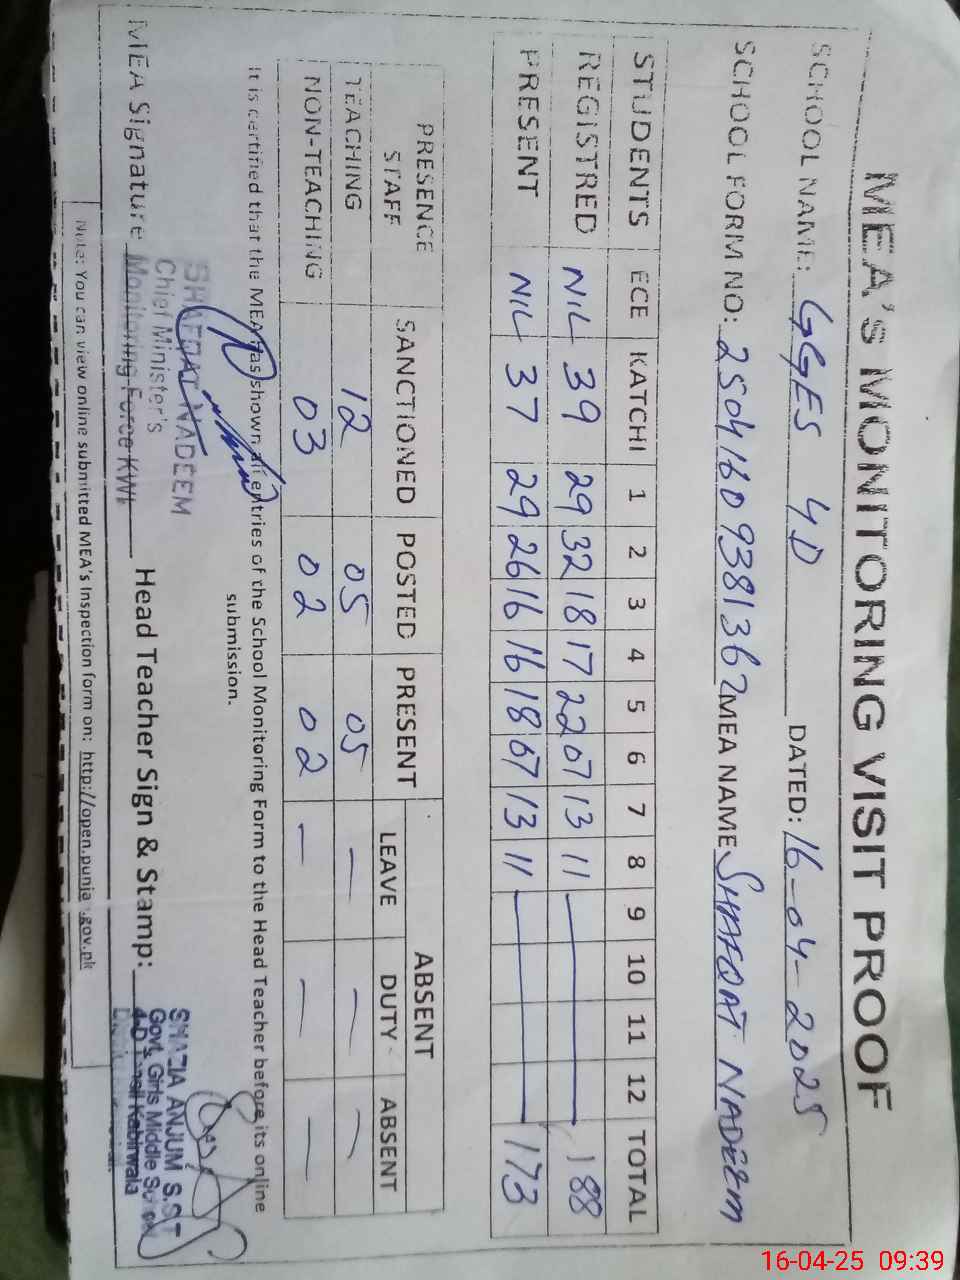 MEA'S MONITORING VISIT PROOF
SCHOOL NAME: GGES 4D DATED: 16-04-2025
SCHOOL FORM NO: 2504160938136? MEA NAME SHAFQAT NADEEM
STUDENTS ECE KATCHI 1 2 3 4 5 6 7 8 9 10 11 12 TOTAL
REGISTRED NIL 39 29 32 18 17 22 07 13 11 188
PRESENT NIL 37 29 26 16 16 18 07 13 11 173
PRESENCE STAFF SANCTIONED POSTED PRESENT ABSENT
LEAVE DUTY ABSENT
TEACHING 12 05 05 — — —
NON-TEACHING 03 02 02 — — —
It is certified that the MEA has shown all entries of the School Monitoring Form to the Head Teacher before its online
submission.
SHAFQAT NADEEM
Chief Minister's
Monitoring Force KWL
MEA Signature Head Teacher Sign & Stamp:
SHAZIA ANJUM S.S.T
Govt. Girls Middle School
4-D Tehsil Kabirwala
Note: You can view online submitted MEA's Inspection form on: http://open.punjab.gov.pk
16-04-25 09:39